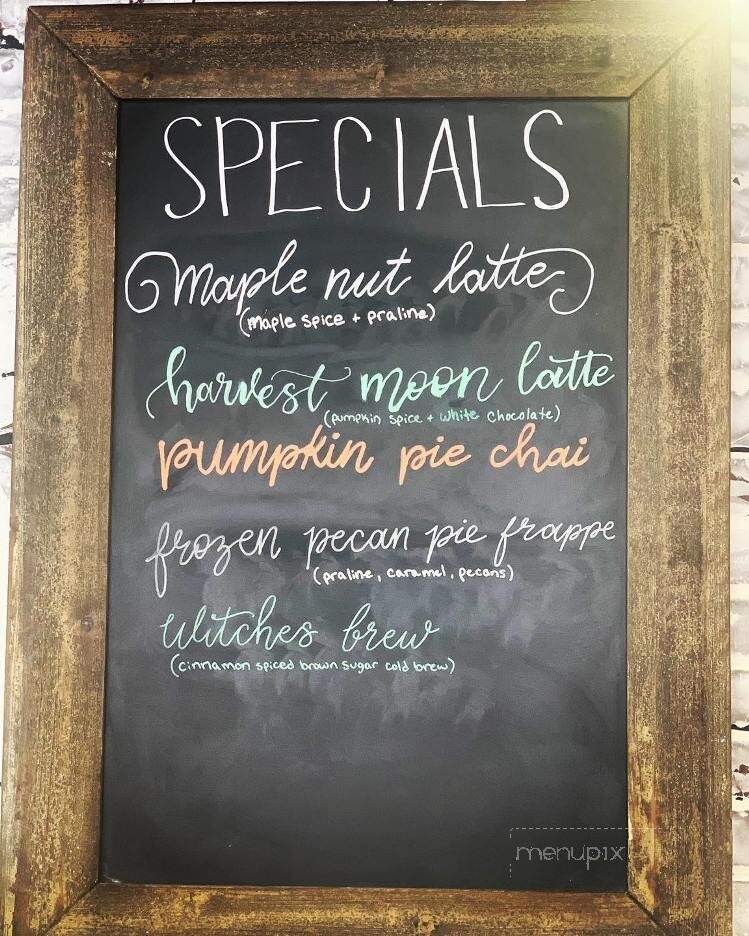 SPECIALS
Maple nut latte
(maple spice + praline)
harvest moon latte
(pumpkin spice + white chocolate)
pumpkin pie chai
frozen pecan pie frappe
(praline, caramel, pecans)
Witches brew
(cinnamon spiced brown sugar cold brew)
menupix